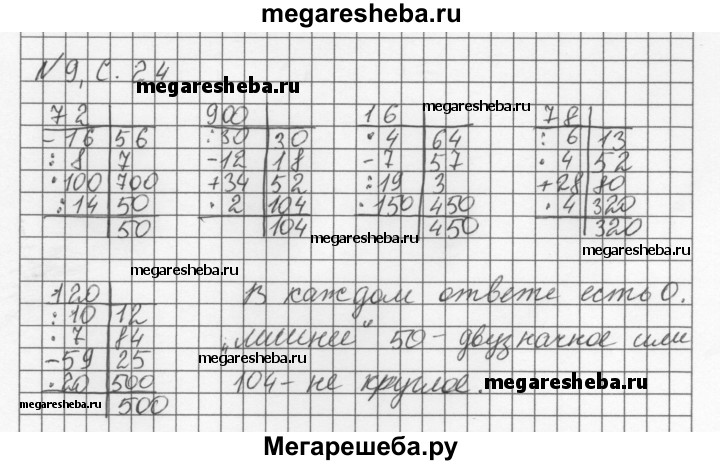 megaresheba.ru
N 9, с. 24
megaresheba.ru
72
- 16 | 56
: 8 | 7
· 100 | 700
: 14 | 50
50
900
: 30 | 30
- 12 | 18
+ 34 | 52
· 2 | 104
104
16
· 4 | 64
- 7 | 57
: 19 | 3
· 150 | 450
450
megaresheba.ru
78
: 6 | 13
· 4 | 52
+ 28 | 80
· 4 | 320
320
megaresheba.ru
megaresheba.ru
megaresheba.ru
120
: 10 | 12
· 7 | 84
- 59 | 25
· 20 | 500
500
В каждом ответе есть 0.
„лишнее" 50 - двузначное или
megaresheba.ru
104 - не круглое.
megaresheba.ru
megaresheba.ru
Мегарешеба.ру